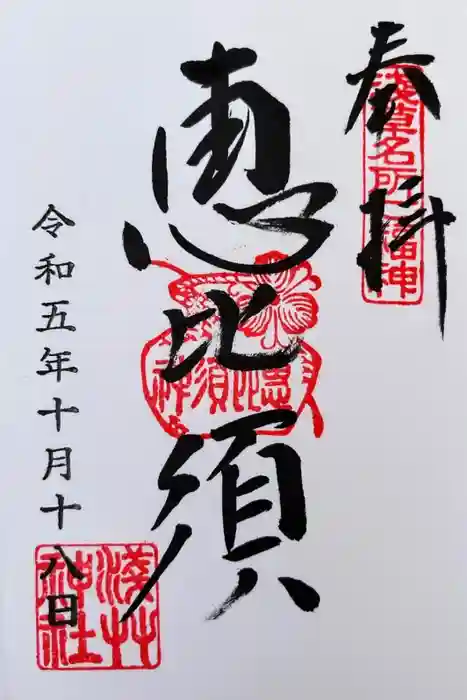 奉拝
浅草名所七福神
恵比須
恵比須神
令和五年十月十八日
浅草神社